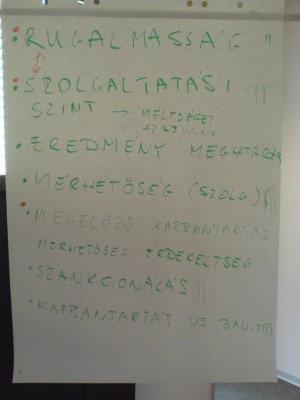 RUGALMASSÁG
SZOLGÁLTATÁSI
SZINT → MÉLTSÉGE?
EREDMÉNY MEGHATÁR
MÉRHETŐSÉG (SZOLG)
MEGELŐZŐ KARBANTARTÁS
MÉRHETŐSÉG, ÉRDEKELTSÉG
SZANKCIONÁLÁS
KARBANTARTÁS VS JAVÍTÁS